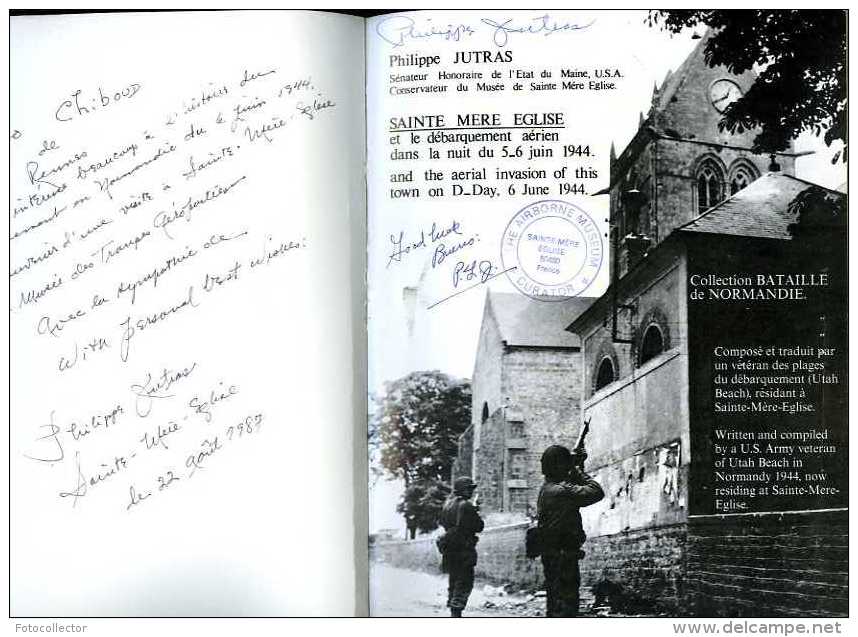 Chiboud
de
Rennes
intéressé beaucoup à l'histoire du
en Normandie du 6 juin 1944.
d'une visite à Sainte-Mère-Église
Musée des Troupes Aéroportées
Avec la sympathie de
With personal best wishes:
Philippe Jutras
Sainte-Mère-Église
le 22 Août 1987
Philippe Jutras
Philippe JUTRAS
Sénateur Honoraire de l'Etat du Maine, U.S.A.
Conservateur du Musée de Sainte Mére Eglise.
SAINTE MERE EGLISE
et le débarquement aérien
dans la nuit du 5_6 juin 1944.
and the aerial invasion of this
town on D_Day, 6 June 1944.
Good luck
Bruno:
P.L.J.
THE AIRBORNE MUSEUM
SAINTE MÈRE
EGLISE
50480
France
CURATOR
Collection BATAILLE
de NORMANDIE.
Composé et traduit par
un vétéran des plages
du débarquement (Utah
Beach), résidant à
Sainte-Mère-Eglise.
Written and compiled
by a U.S. Army veteran
of Utah Beach in
Normandy 1944, now
residing at Sainte-Mere-
Eglise.
Fotocollector
www.delcampe.net